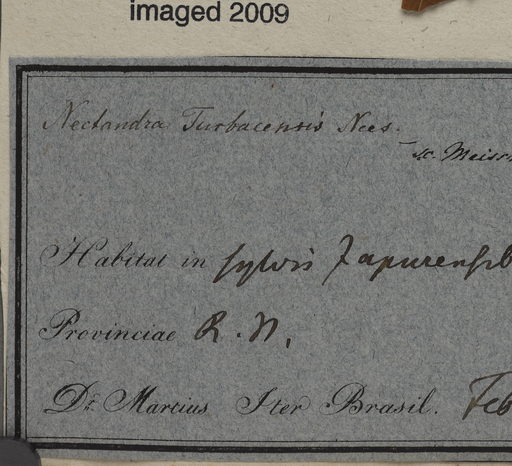 imaged 2009
Nectandra Turbacensis Nees.
sc. Meissn
Habitat in sylvis Japurensib
Provinciae R. N.
Dr. Martius Iter Brasil. Feb